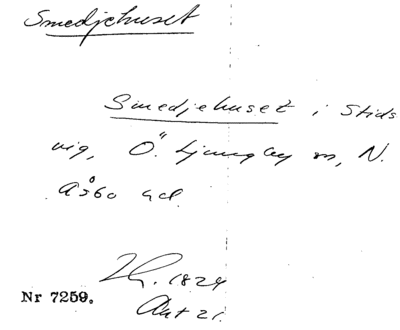 Smedjehuset
Smedjehuset i Stids
vig, Ö. Ljungby sn, N.
Åsbo hd.
1824
Akt 21.
Nr 7259.